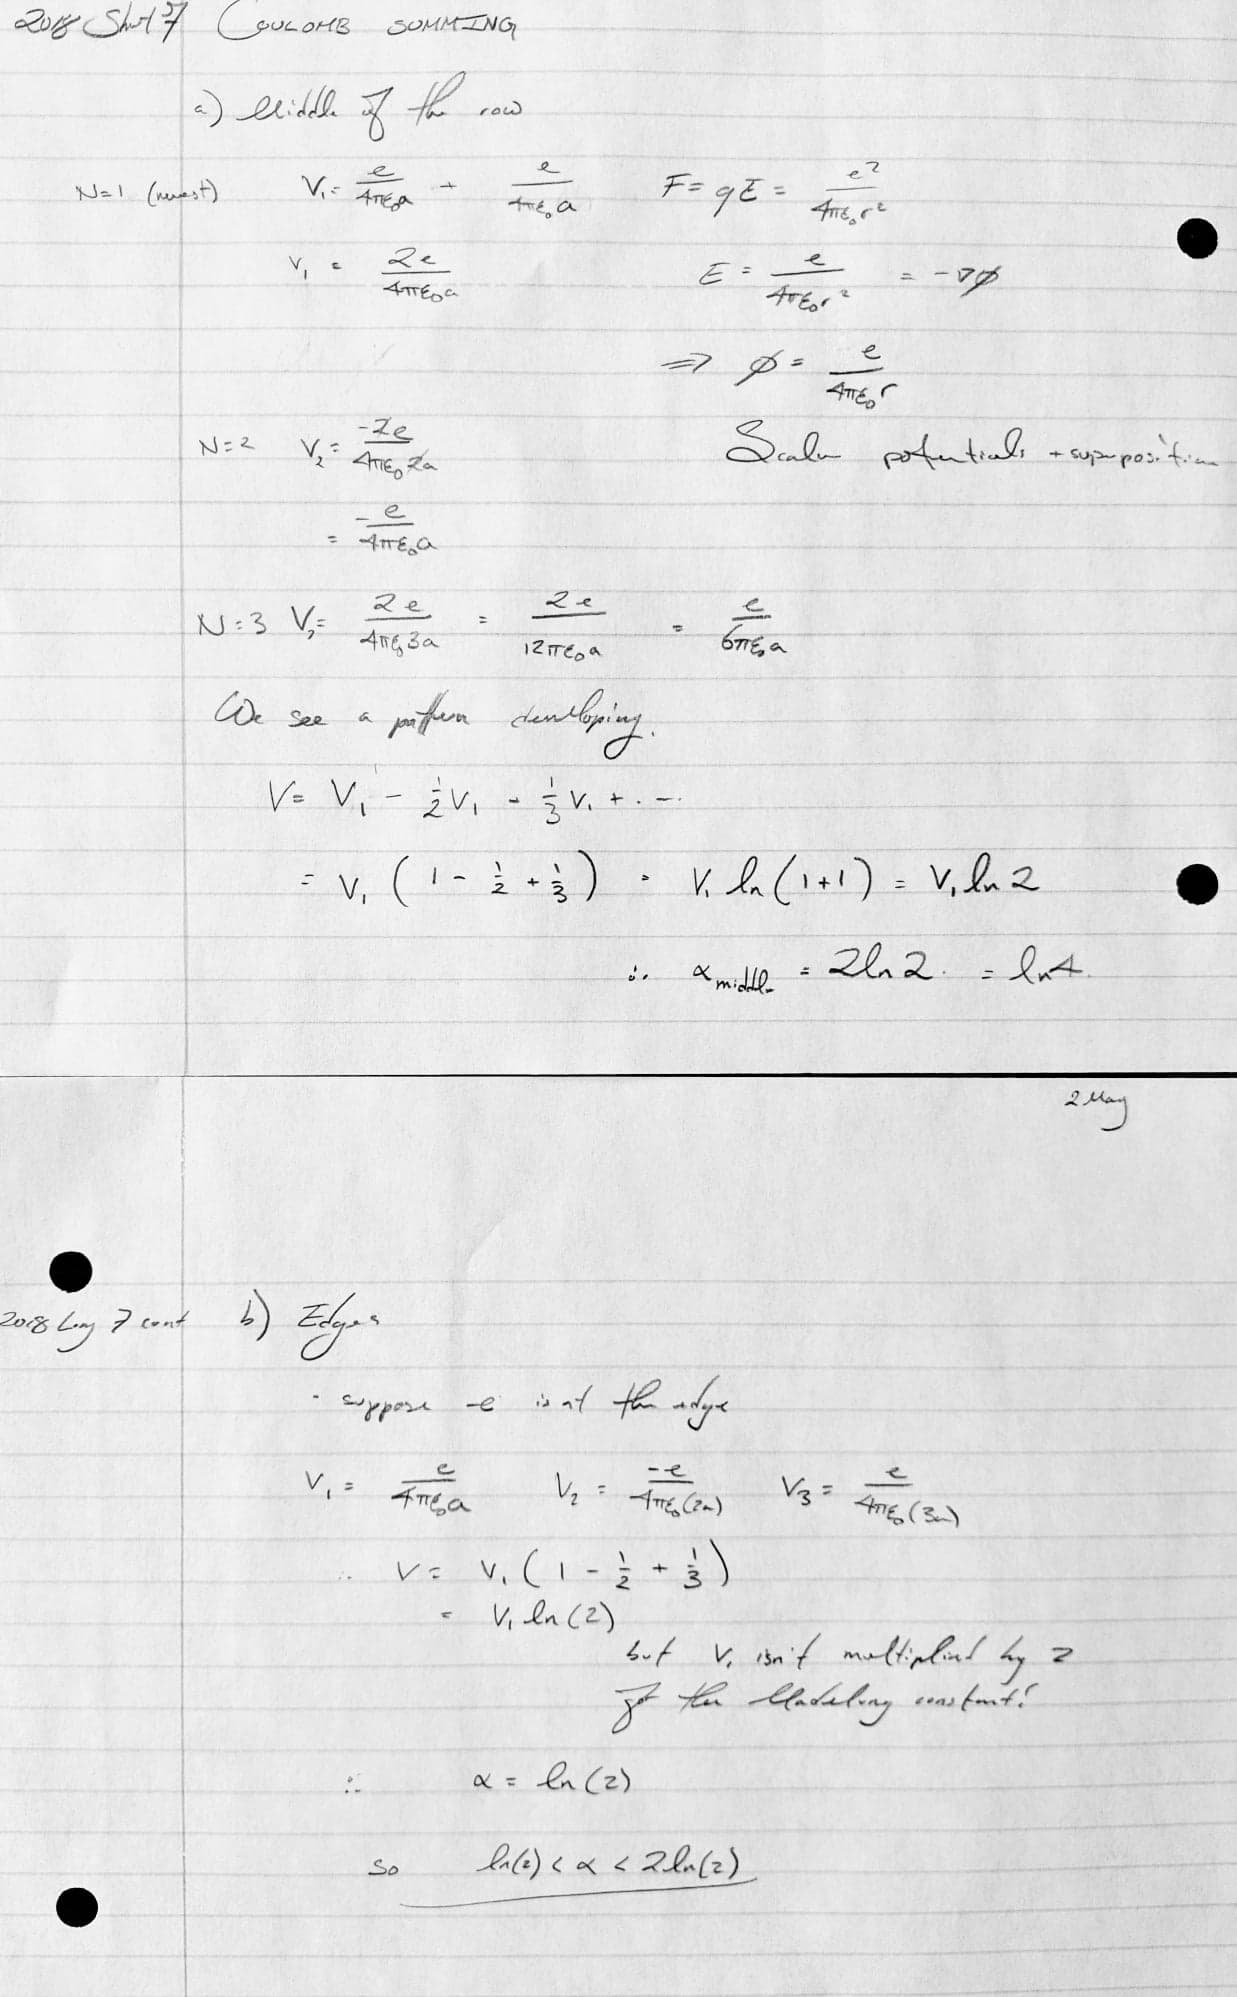 2018 Short 7 COULOMB SUMMING
a) Middle of the row
N=1 (nearest) V₁ = e/4πε₀a + e/4πε₀a F = qE = e²/4πε₀r²
V₁ = 2e/4πε₀a E = e/4πε₀r² = -∇φ
⇒ φ = e/4πε₀r
N=2 V₂ = -2e/4πε₀2a Scalar potentials + superposition
= -e/4πε₀a
N=3 V₃ = 2e/4πε₀3a = 2e/12πε₀a = e/6πε₀a
We see a pattern developing.
V = V₁ - ½V₁ - ⅓V₁ + ...
= V₁ (1 - ½ + ⅓) = V₁ ln(1+1) = V₁ ln 2
∴ α middle = 2ln2. = ln4.
2 May
2018 Long 7 cont b) Edges
- suppose -e is at the edge
V₁ = e/4πε₀a V₂ = -e/4πε₀(2a) V₃ = e/4πε₀(3a)
∴ V = V₁ (1 - ½ + ⅓)
= V₁ ln(2)
but V₁ isn't multiplied by 2
for the Madelung constant!
∴ α = ln(2)
so ln(2) < α < 2ln(2)